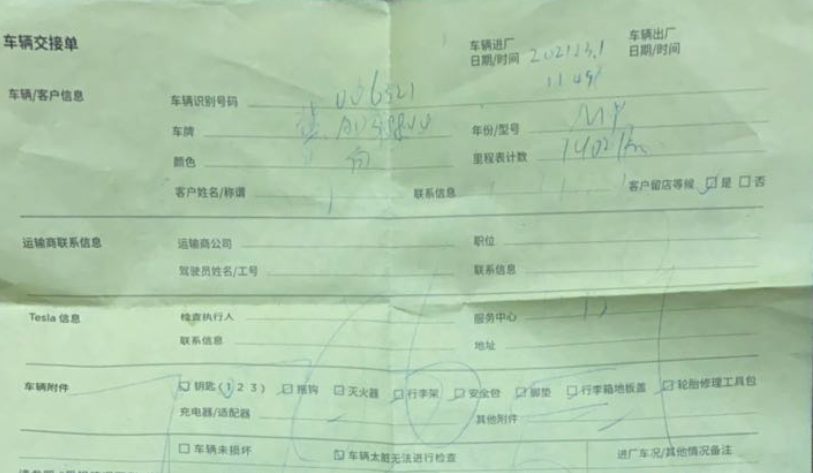 车辆交接单
车辆进厂 日期/时间 2021.12.1 11:49
车辆出厂 日期/时间
车辆/客户信息
车辆识别号码 006521
车牌
年份/型号 MY
颜色 白
里程表计数 1402km
客户姓名/称谓 联系信息 客户留店等候 ☑ 是 ☐ 否
运输商联系信息 运输商公司 职位
驾驶员姓名/工号 联系信息
Tesla 信息 检查执行人 服务中心
联系信息 地址
车辆附件 钥匙(1 2 3) 拖钩 灭火器 行李架 安全包 脚垫 行李箱地板盖 轮胎修理工具包
充电器/适配器 其他附件
车辆未损坏 车辆太脏无法进行检查 进厂车况/其他情况备注